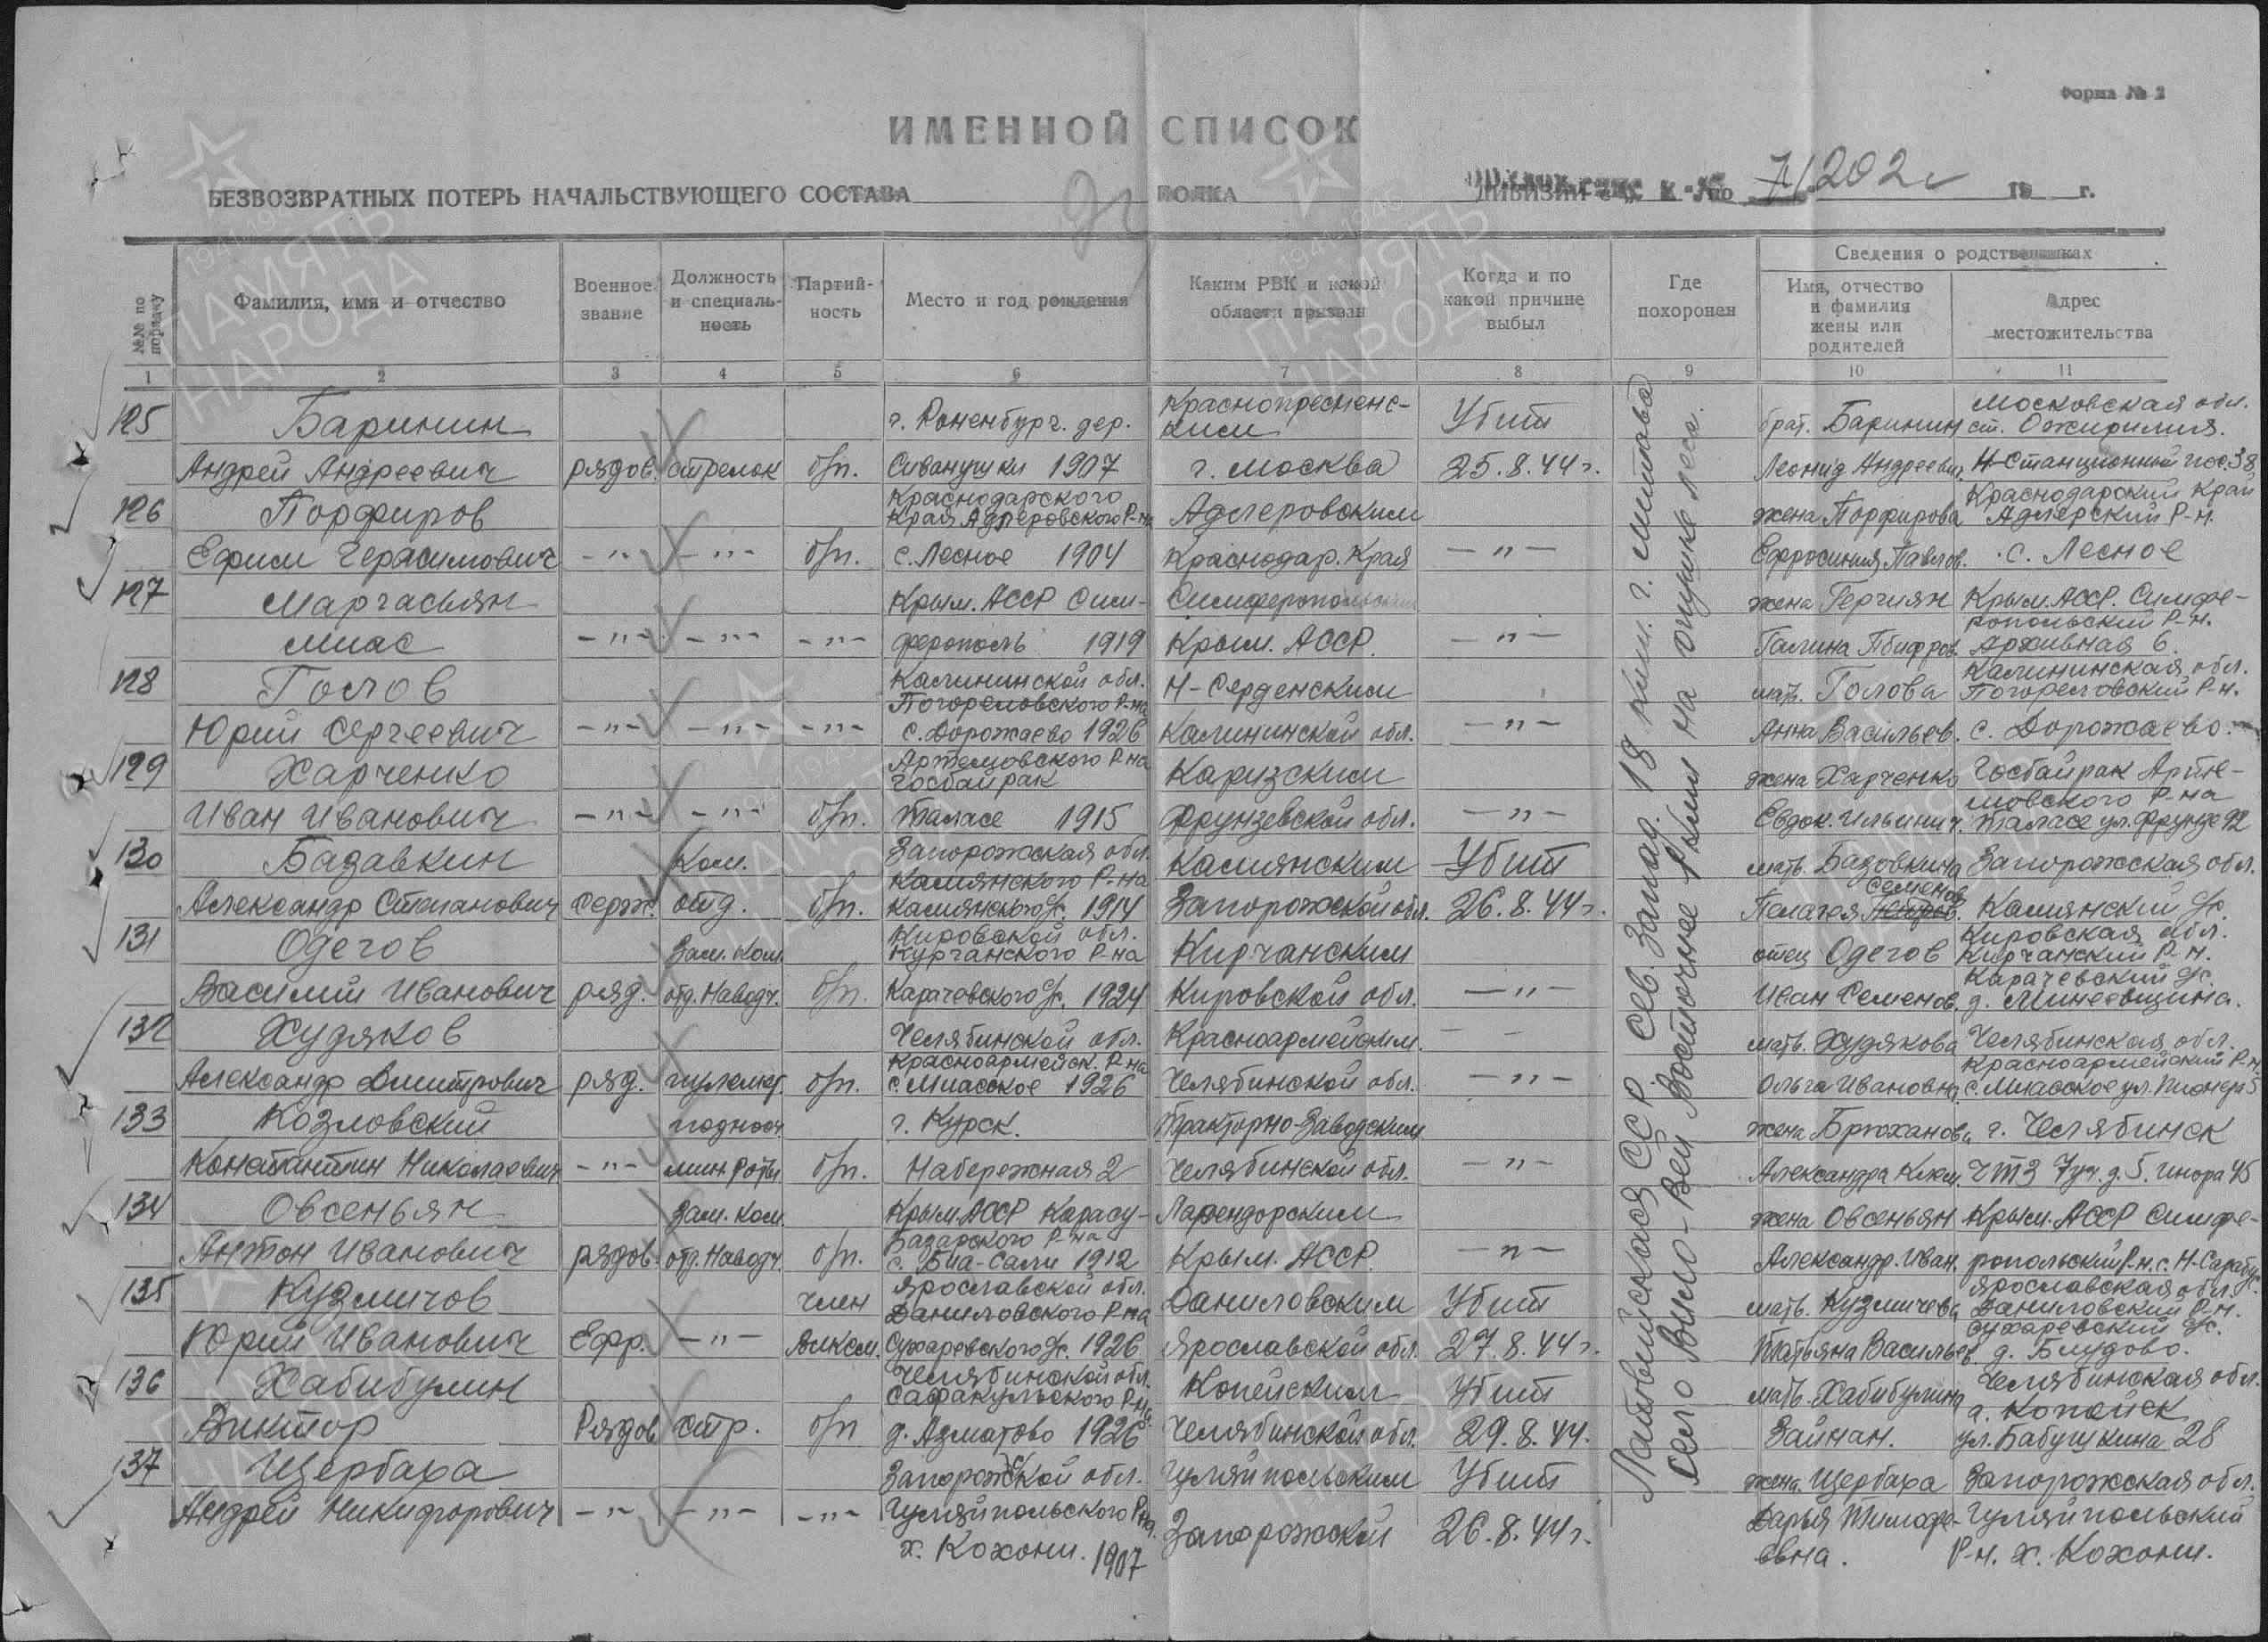 Форма № 2
ИМЕННОЙ СПИСОК
БЕЗВОЗВРАТНЫХ ПОТЕРЬ НАЧАЛЬСТВУЮЩЕГО СОСТАВА ПОЛКА ДИВИЗИИ по 202 19 г.
№№ по порядку
Фамилия, имя и отчество
Военное звание
Должность и специальность
Партийность
Место и год рождения
Каким РВК и какой области призван
Когда и по какой причине выбыл
Где похоронен
Сведения о родственниках
Имя, отчество и фамилия жены или родителей
Адрес местожительства
1 2 3 4 5 6 7 8 9 10 11
125 Баринин г. Роненбург. дер. Краснопресненс-ким Убит брат. Баринин Московская обл. ст.
Андрей Андреевич рядов. стрелок б/п. Сиванушки 1907 г. Москва 25.8.44г. Леонид Андреевич Н-Станционный пос. 38
126 Порфиров Краснодарского Края Адлеровского Р-на Адлеровским жена Порфирова Краснодарский Край Адлерский Р-н.
Ефим Герасимович -"- -"- б/п. с. Лесное 1904 Краснодар. Края -"- Ефросиния Павлов. с. Лесное
127 Маргасьян Крым. АССР Сим- Симферопольским жена Гергиян Крым. АССР. Симфе-
Миас -"- -"- -"- ферополь 1919 Крым. АССР. -"- Галина ропольский Р-н. Архивная 6.
128 Голов Калининской обл. Погореловского Р-на Н-Серденским мать. Голова Калининская обл. Погореловский Р-н.
Юрий Сергеевич -"- -"- -"- с. Дорожаево 1926 Калининской обл. -"- Анна Васильев. с. Дорожаево.
129 Харченко Артемовского Р-на Госбайрак Каризским жена Харченко Госбайрак Арте-
Иван Иванович -"- -"- б/п. Таласе 1915 Фрунзевской обл. -"- Евдок. Ильинич. мовского Р-на Таласе ул. Фрунзе 92
130 Базавкин Ком. Запорожская обл. Камянского Р-на Камянским Убит мать. Базовкина Запорожская обл.
Александр Степанович серж. отд. б/п. Камянского с/с. 1914 Запорожской обл. 26.8.44г. Пелагея Семенов. Камянский с/с.
131 Одегов Зам. Ком. Кировской обл. Курчанского Р-на Кирчанским отец Одегов Кировская обл. Кирчанский Р-н.
Василий Иванович ряд. отд. Наводч. б/п. Карачевского с/с. 1924 Кировской обл. -"- Иван Семенов. Карачевский с/с. д. Минеевщина.
132 Худяков Челябинской обл. Красноармейским. мать. Худякова Челябинская обл.
Александр Дмитрович ряд. пулемет. б/п. Красноармейск. Р-на с. Миасское 1926 Челябинской обл. -"- Ольга Ивановна. Красноармейский Р-н. с. Миасское ул. Пионер 5
133 Козловский поднос. г. Курск. Тракторно-Заводским жена Брюханова г. Челябинск
Константин Николаевич -"- мин. Роты б/п. Набережная 2 Челябинской обл. -"- Александра Клим. ЧТЗ 7 уч. д. 5.
134 Овсеньян Зам. Ком. Крым. АССР Карасу- жена Овсеньян Крым. АССР Симфе-
Антон Иванович рядов. отд. Наводч. б/п. Базарского Р-на с. Биа-Сали 1912 Крым. АССР. -"- Александр. Иван. ропольский Р-н. с. Н-Сарабуз.
135 Кузмичов член Ярославской обл. Даниловского Р-на Даниловским Убит мать. Кузмичева Ярославская обл. Даниловский Р-н.
Юрий Иванович Ефр. -"- влксм. Сухаревского с/с. 1926 Ярославской обл. 27.8.44г. Татьяна Васильев. Сухаревский с/с. д. Блудово.
136 Хабибулин Челябинской обл. Сафакульского Р-на. Копейским Убит мать. Хабибулина Челябинская обл. г. Копейск
Виктор Рядов стр. б/п д. Азматово 1926 Челябинской обл. 29.8.44. Зайнап. ул. Бабушкина 28
137 Щербаха Запорожской обл. Гуляйпольским Убит жена. Щербаха Запорожская обл.
Андрей Никифорович -"- -"- -"- Гуляйпольского Р-на. Запорожской 26.8.44г. Дарья Тимофе- Гуляйпольский
х. Кохони. 1907 евна. Р-н. х. Кохони.
Латвийская ССР. Сев. Запад. 18 клм. г. Митава
село Вило-Вей Восточнее 1 клм на опушке леса.
1941-1945
ПАМЯТЬ НАРОДА